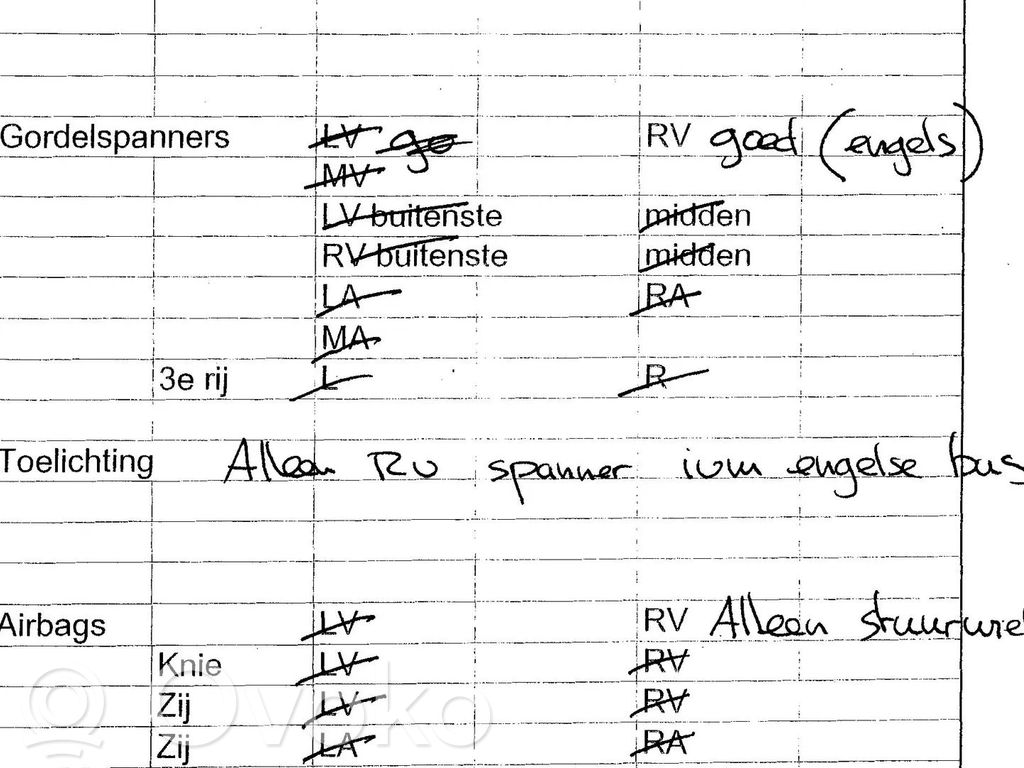 Gordelspanners LV go RV goed (engels)
MV
LV buitenste midden
RV buitenste midden
LA RA
MA
3e rij L R
Toelichting Alleen RV spanner ivm engelse bus
Airbags LV RV Alleen stuurwiel
Knie LV RV
Zij LV RV
Zij LA RA
Ovoko